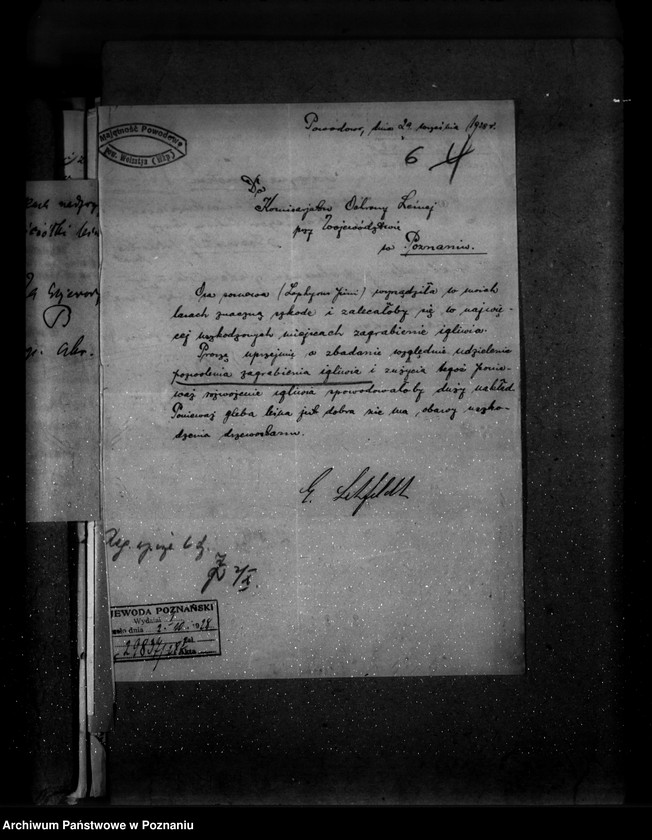 Majętność Powodowo
pow. Wolsztyn (Wlkp)
Powodowo, dnia 29 września 1928 r.
6
Do
Komisarjatu Ochrony Leśnej
przy Województwie
w Poznaniu.
Osa sosnowa (Lophyrus pini) wyrządziła w moich
lasach znaczną szkodę i zalecałoby się to najwię-
cej uszkodzonych miejscach zagrabienie igliwia.
Proszę uprzejmie o zbadanie względnie udzielenie
pozwolenia zagrabienia igliwia i zużycia tegoż ponie-
waż rozwożenie igliwia spowodowałoby duży nakład.
Ponieważ gleba leśna już dobra nie ma obawy uszko-
dzenia drzewostanu.
WOJEWODA POZNAŃSKI
Wydział
dnia 2. 10. 1928
29834/28
Archiwum Państwowe w Poznaniu